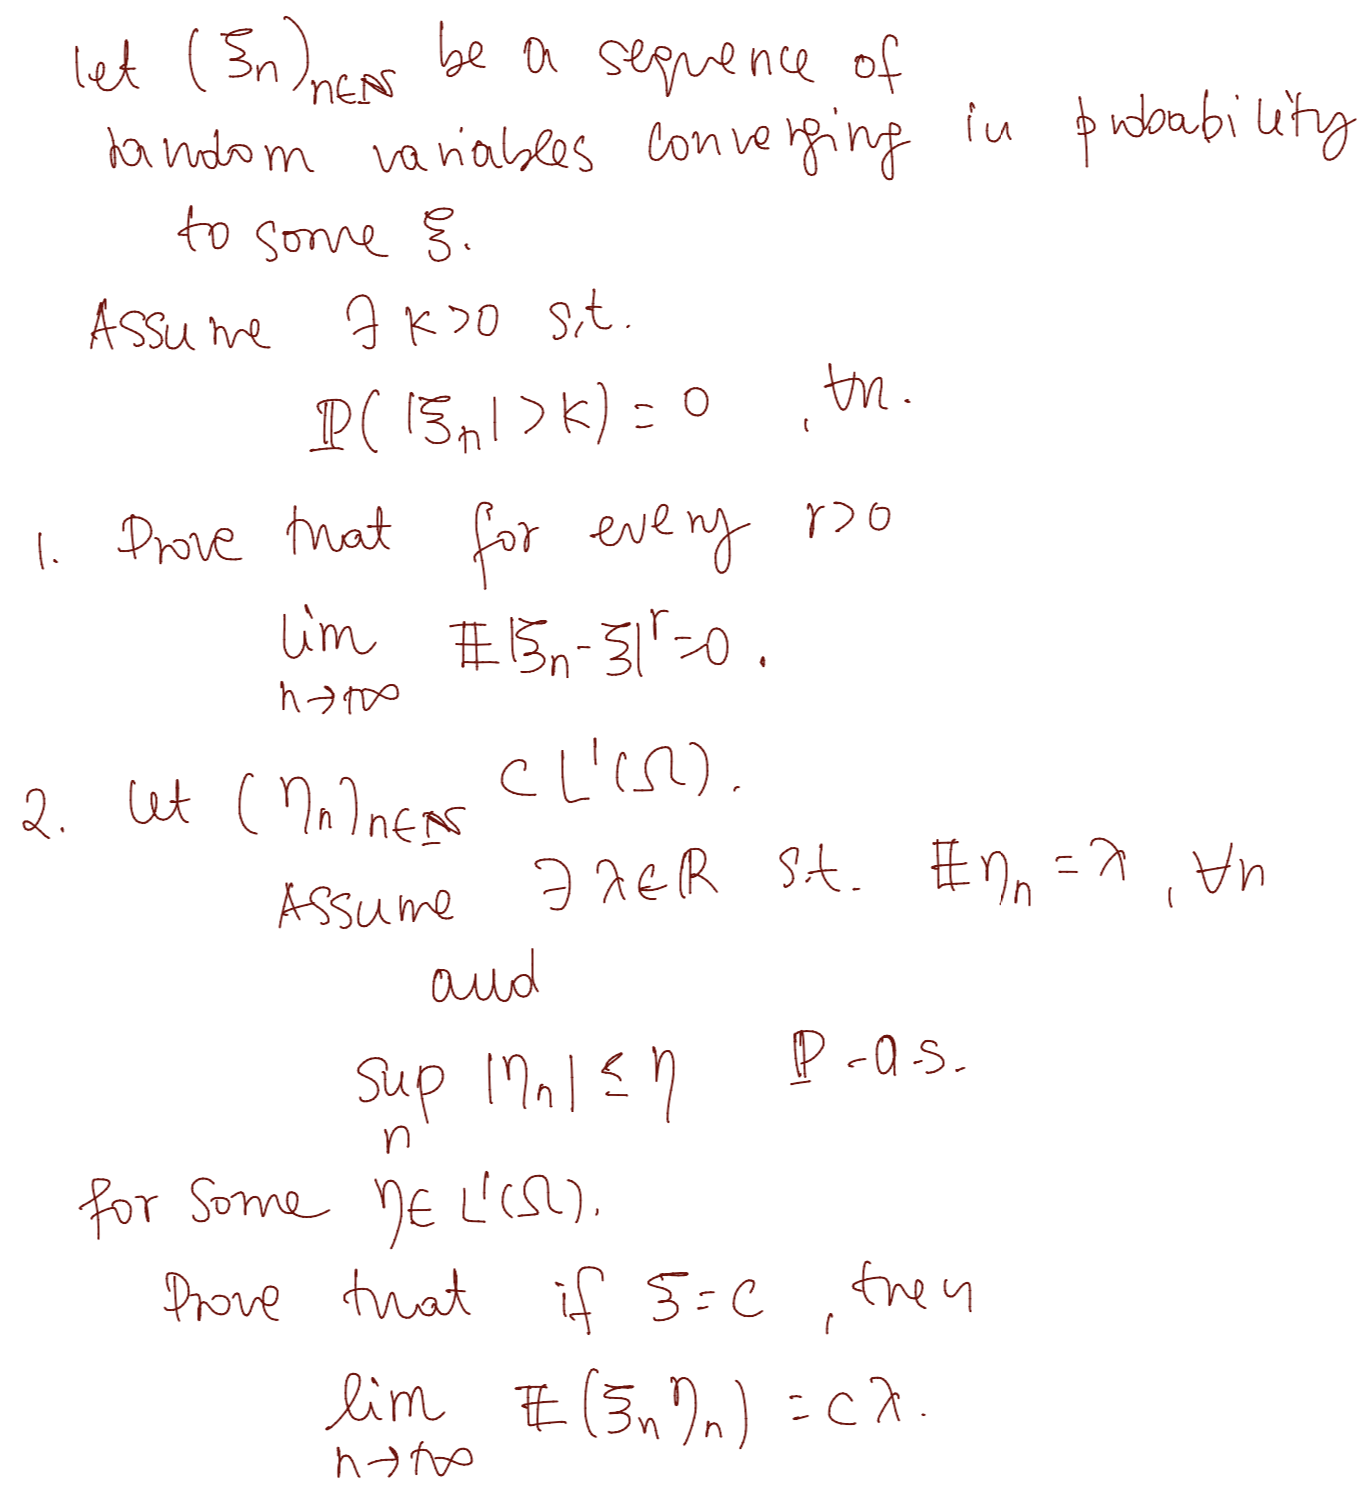 let (ξn)n∈ℕ be a sequence of
random variables converging in probability
to some ξ.
Assume ∃ K>0 s.t.
ℙ( |ξn| > K) = 0 , ∀n.
1. Prove that for every r>0
lim 𝔼|ξn-ξ|^r=0.
n→+∞
2. let (ηn)n∈ℕ ⊂ L¹(Ω).
Assume ∃ λ∈ℝ s.t. 𝔼ηn = λ , ∀n
and
sup |ηn| ≤ η ℙ-a.s.
n
for some η∈ L¹(Ω).
Prove that if ξ=c , then
lim 𝔼(ξnηn) = cλ.
n→+∞